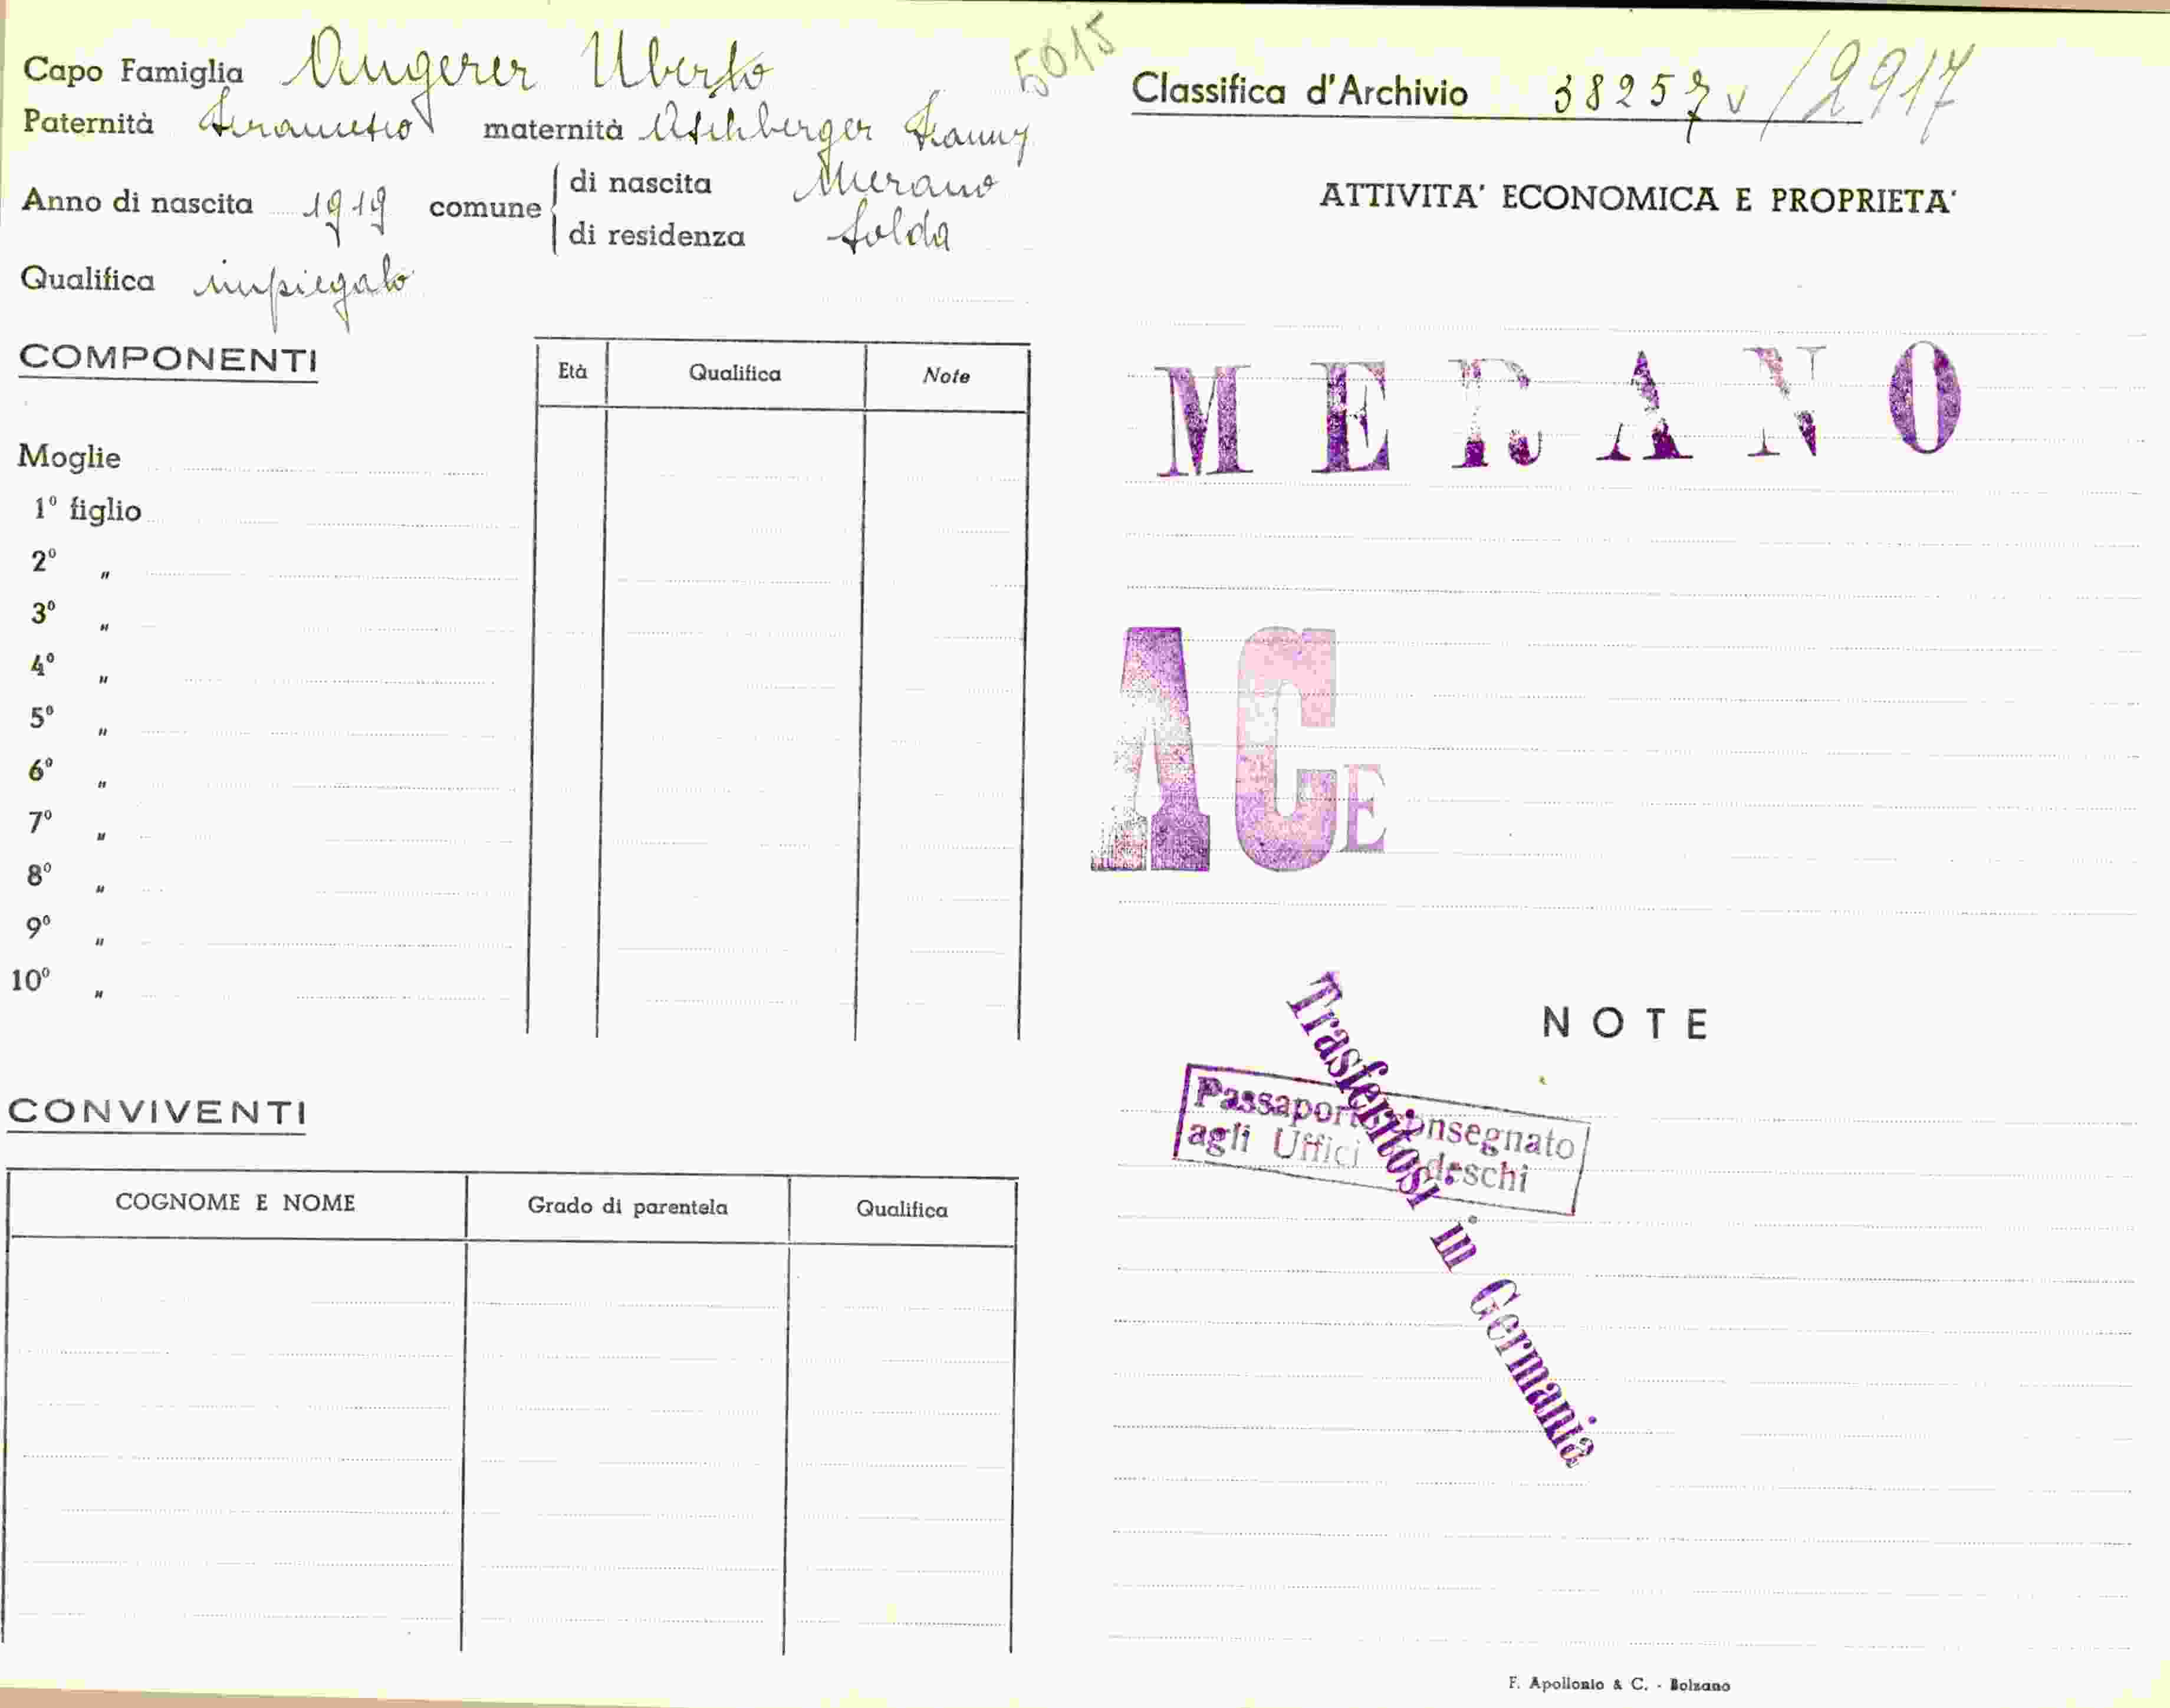 Capo Famiglia Angerer Uberto
5015
Paternità maternità Aschberger Fanny
Anno di nascita 1919 comune di nascita Merano
di residenza Solda
Qualifica impiegato
COMPONENTI
Età Qualifica Note
Moglie
1º figlio
2º "
3º "
4º "
5º "
6º "
7º "
8º "
9º "
10º "
CONVIVENTI
COGNOME E NOME Grado di parentela Qualifica
Classifica d'Archivio 38257 v /2917
ATTIVITA' ECONOMICA E PROPRIETA'
MERANO
ACE
NOTE
Passaporto consegnato
agli Uffici tedeschi
Trasferitosi in Germania
F. Apollonio & C. - Bolzano